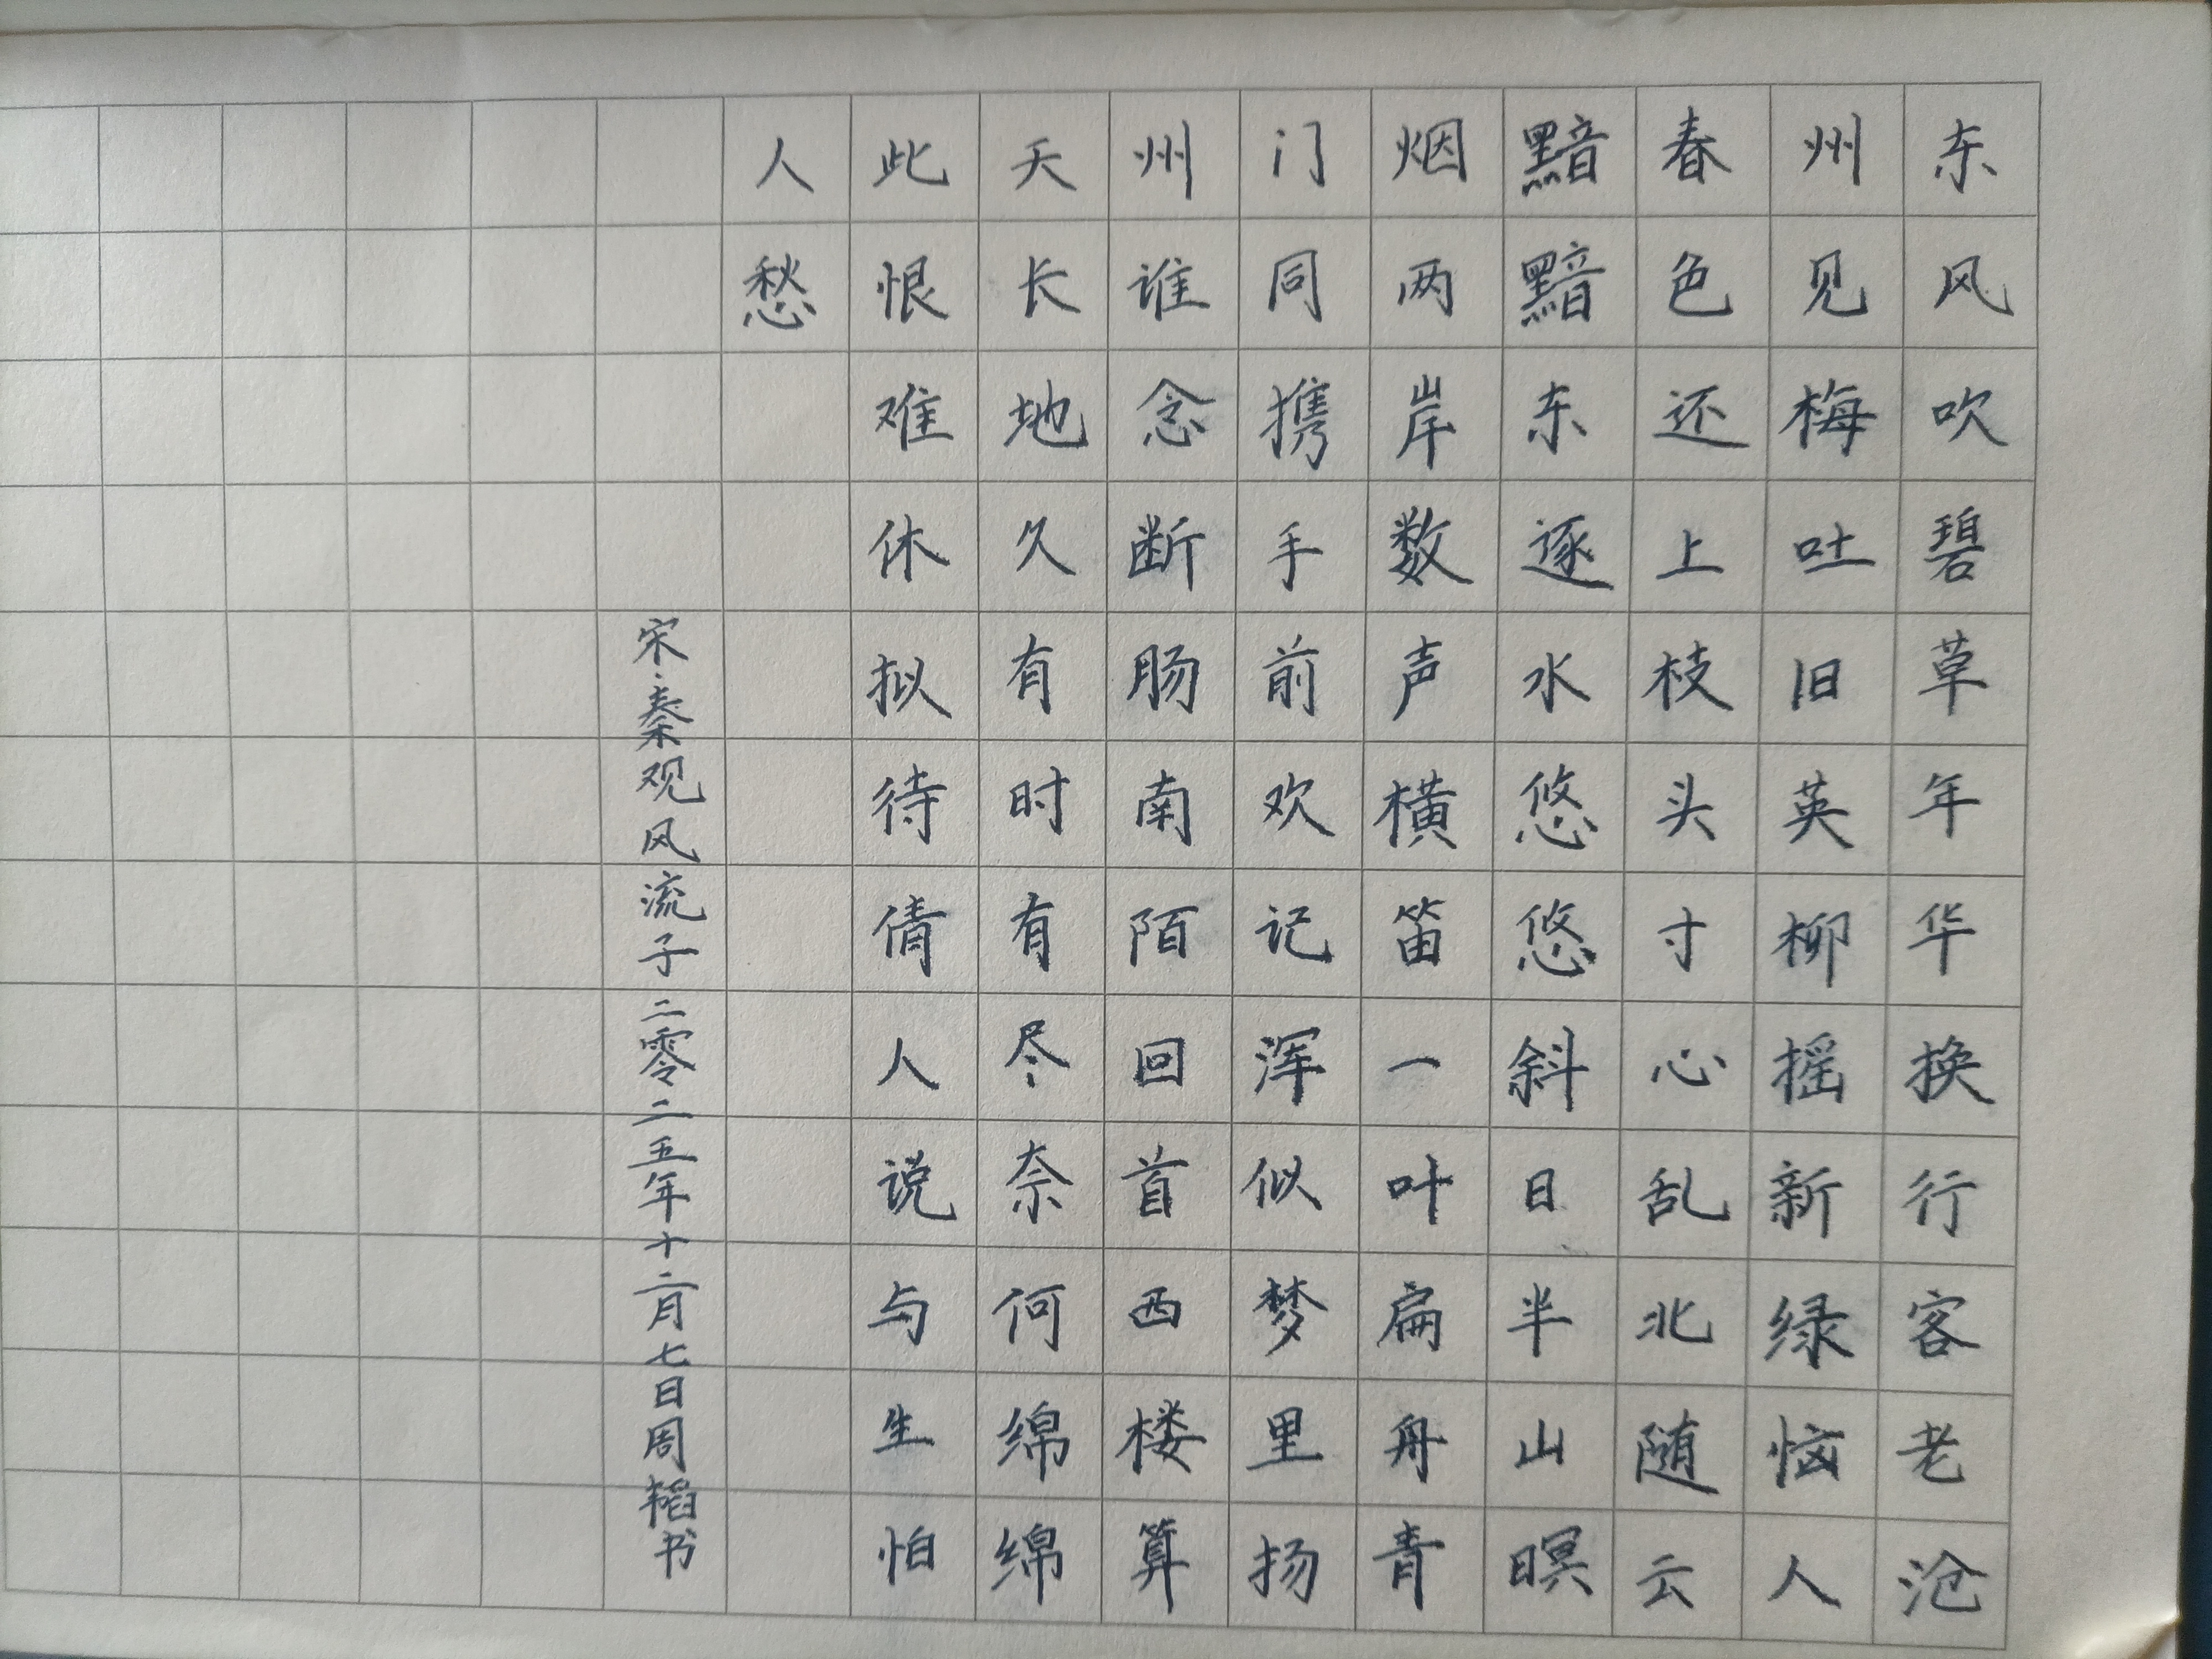 东风吹碧草年华换行客老沧
州见梅吐旧英柳摇新绿恼人
春色还上枝头寸心乱北随云
黯黯东逐水悠悠斜日半山暝
烟两岸数声横笛一叶扁舟青
门同携手前欢记浑似梦里扬
州谁念断肠南陌回首西楼算
天长地久有时有尽奈何绵绵
此恨难休拟待倩人说与生怕
人愁
宋·秦观风流子二零二五年十二月七日周韬书